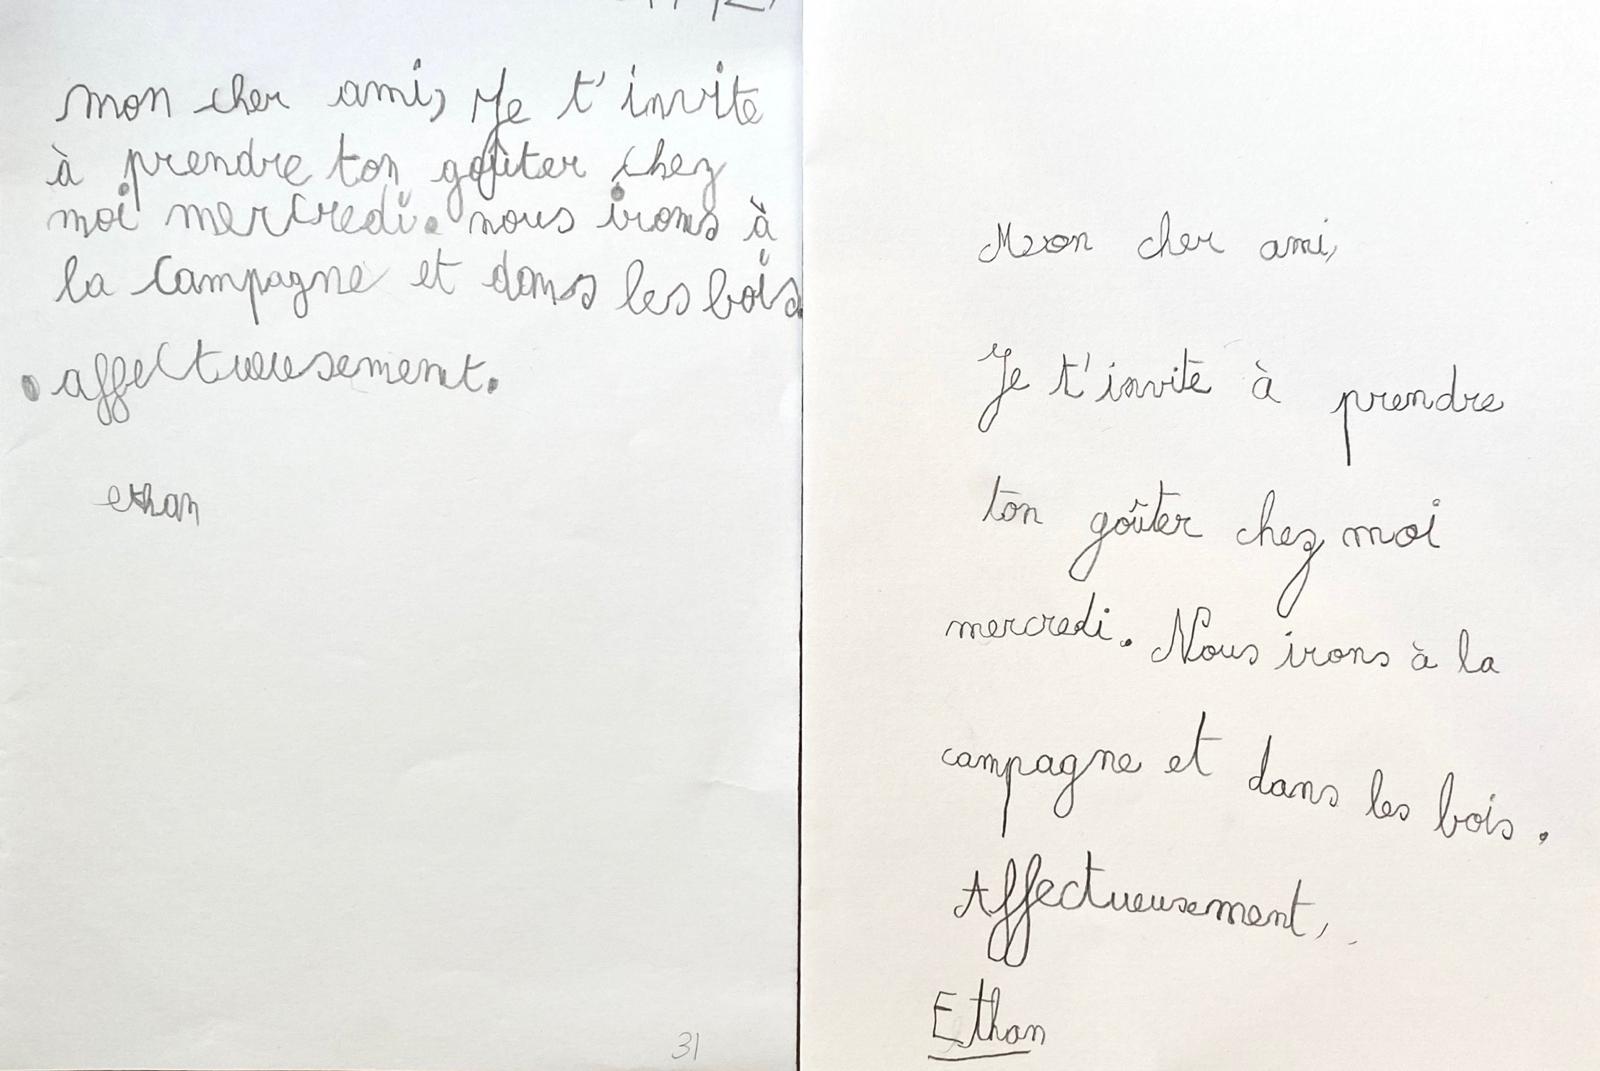 mon cher ami, Je t'invite
à prendre ton goûter chez
moi mercredi. nous irons à
la campagne et dans les bois.
affectueusement.
ethan
31
Mon cher ami,
Je t'invite à prendre
ton goûter chez moi
mercredi. Nous irons à la
campagne et dans les bois.
Affectueusement,
Ethan